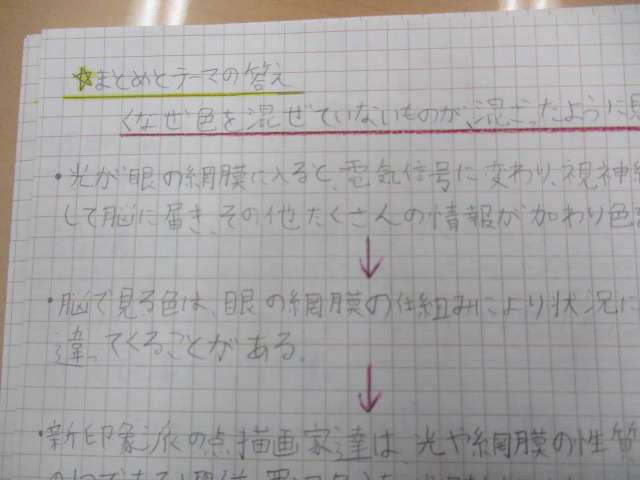 ☆まとめとテーマの答え
くなぜ色を混ぜていないものが混ざったように見
・光が眼の網膜に入ると、電気信号に変わり、視神経
して脳に届き、その他たくさんの情報が加わり色
・脳で見る色は、眼の網膜の仕組みにより状況に
違ってくることがある。
・新印象派の点描画家達は光や網膜の性質